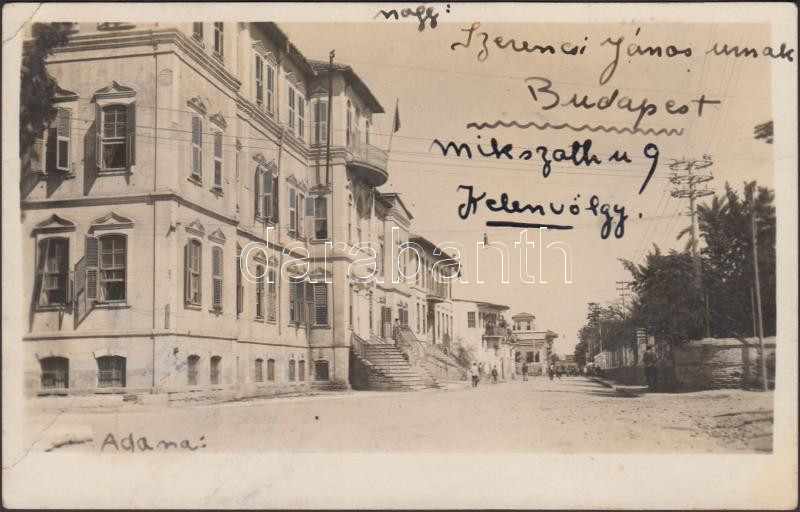 nagy:
Szerencsi János urnak
Budapest
Mikszáth u 9
Kelenvölgy.
darabanth
Adana: